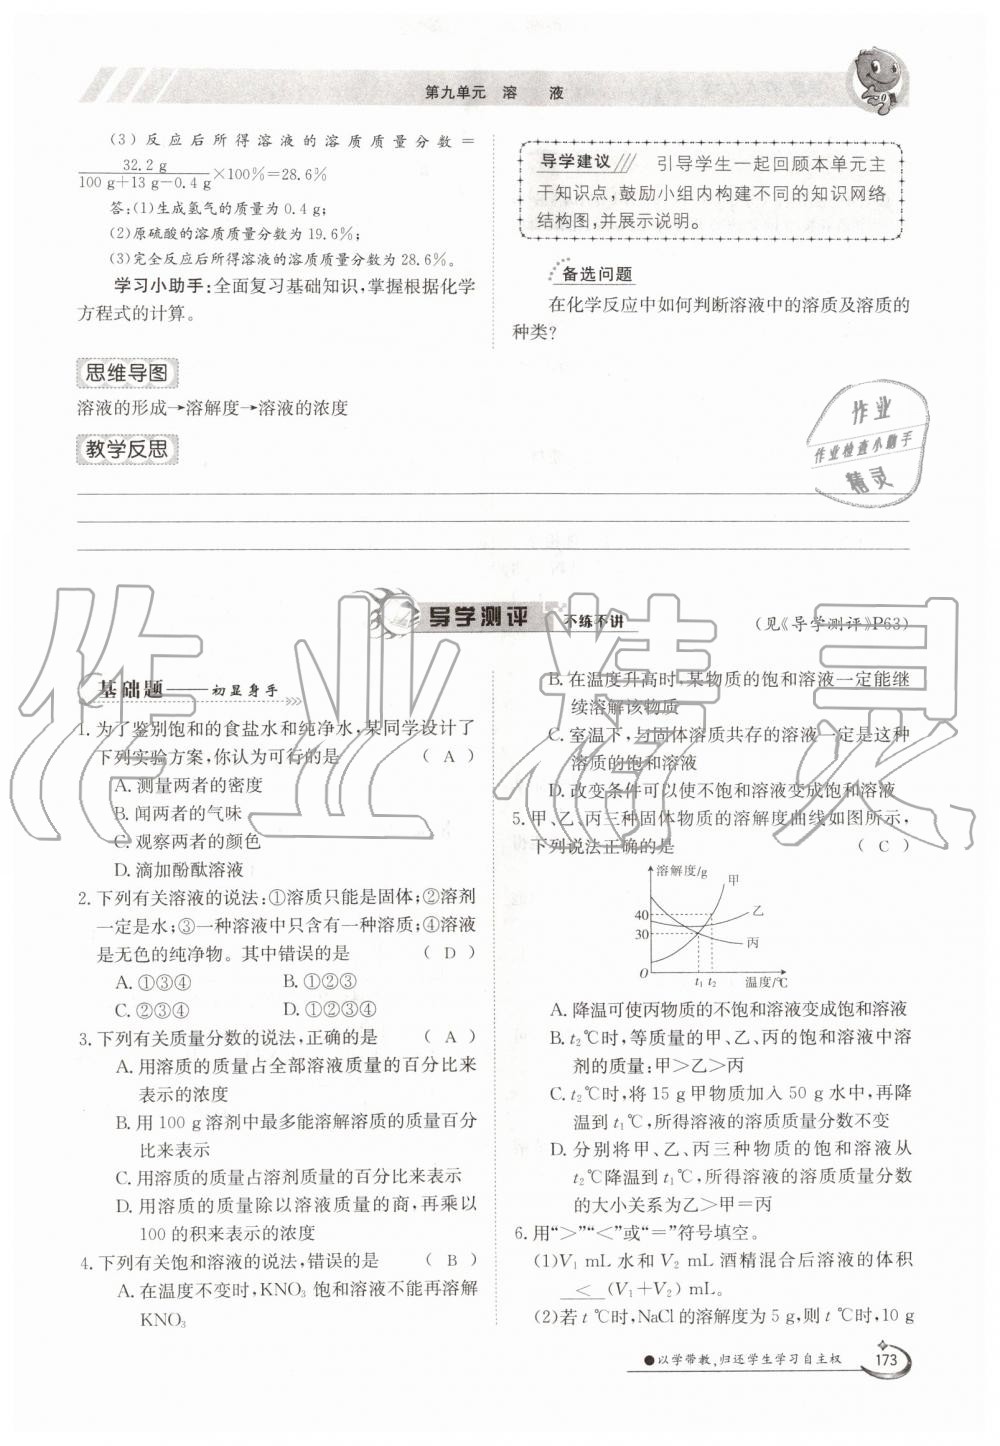 第九单元 溶 液
(3)反应后所得溶液的溶质质量分数=
32.2 g
100 g+13 g-0.4 g
×100%=28.6%
答:(1)生成氢气的质量为0.4 g;
(2)原硫酸的溶质质量分数为19.6%;
(3)完全反应后所得溶液的溶质质量分数为28.6%。
学习小助手:全面复习基础知识,掌握根据化学
方程式的计算。
导学建议 引导学生一起回顾本单元主
干知识点,鼓励小组内构建不同的知识网络
结构图,并展示说明。
备选问题
在化学反应中如何判断溶液中的溶质及溶质的
种类?
思维导图
溶液的形成→溶解度→溶液的浓度
教学反思
作业
作业检查小助手
精灵
作业精灵
导学测评 不练不讲
(见《导学测评》P63)
基础题——初显身手
1.为了鉴别饱和的食盐水和纯净水,某同学设计了
下列实验方案,你认为可行的是 ( A )
A. 测量两者的密度
B. 闻两者的气味
C. 观察两者的颜色
D. 滴加酚酞溶液
2.下列有关溶液的说法:①溶质只能是固体;②溶剂
一定是水;③一种溶液中只含有一种溶质;④溶液
是无色的纯净物。其中错误的是 ( D )
A. ①③④ B. ①②③
C. ②③④ D. ①②③④
3.下列有关质量分数的说法,正确的是 ( A )
A. 用溶质的质量占全部溶液质量的百分比来
表示的浓度
B. 用100 g溶剂中最多能溶解溶质的质量百分
比来表示
C. 用溶质的质量占溶剂质量的百分比来表示
D. 用溶质的质量除以溶液质量的商,再乘以
100的积来表示的浓度
4.下列有关饱和溶液的说法,错误的是 ( B )
A. 在温度不变时,KNO₃饱和溶液不能再溶解
KNO₃
B. 在温度升高时,某物质的饱和溶液一定能继
续溶解该物质
C. 室温下,与固体溶质共存的溶液一定是这种
溶质的饱和溶液
D. 改变条件可以使不饱和溶液变成饱和溶液
5.甲、乙、丙三种固体物质的溶解度曲线如图所示,
下列说法正确的是 ( C )
溶解度/g
甲
乙
丙
40
30
O
t₁ t₂ 温度/℃
A. 降温可使丙物质的不饱和溶液变成饱和溶液
B. t₂℃时,等质量的甲、乙、丙的饱和溶液中溶
剂的质量:甲>乙>丙
C. t₂℃时,将15 g甲物质加入50 g水中,再降
温到t₁℃,所得溶液的溶质质量分数不变
D. 分别将甲、乙、丙三种物质的饱和溶液从
t₂℃降温到t₁℃,所得溶液的溶质质量分数
的大小关系为乙>甲=丙
6.用“>”“<”或“=”符号填空。
(1)V₁ mL水和V₂ mL酒精混合后溶液的体积
< (V₁+V₂) mL。
(2)若t ℃时,NaCl的溶解度为5 g,则t ℃时,10 g
●以学带教,归还学生学习自主权
173